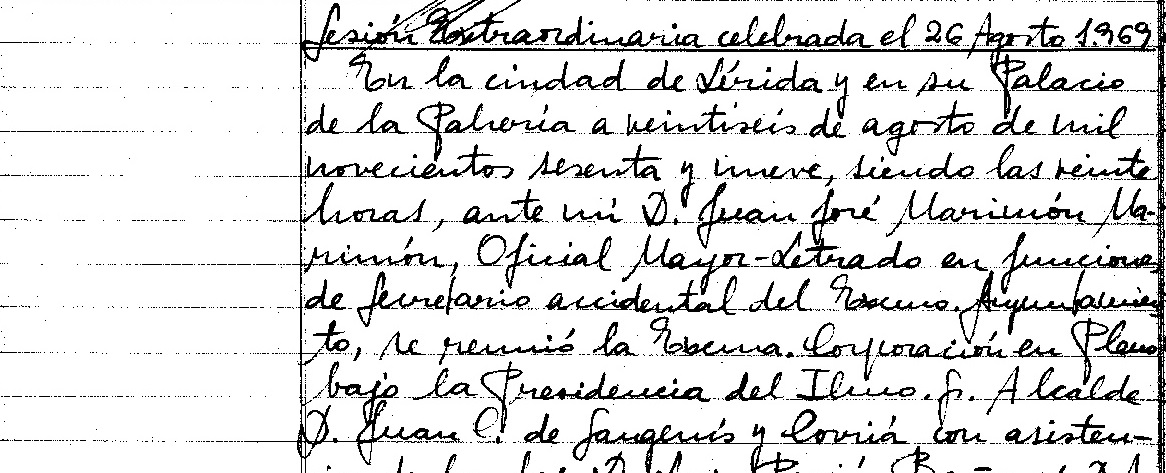 Sesión Extraordinaria celebrada el 26 Agosto 1.969
En la ciudad de Lérida y en su Palacio
de la Pahería a veintiseis de agosto de mil
novecientos sesenta y nueve, siendo las veinte
horas, ante mi D. Juan José Marimón Ma-
rimón, Oficial Mayor-Letrado en funciones
de Secretario accidental del Excmo. Ayuntamien-
to, se reunió la Excma. Corporación en Pleno
bajo la Presidencia del Ilmo. Sr. Alcalde
D. Juan C. de Sangenís y Corriá con asisten-